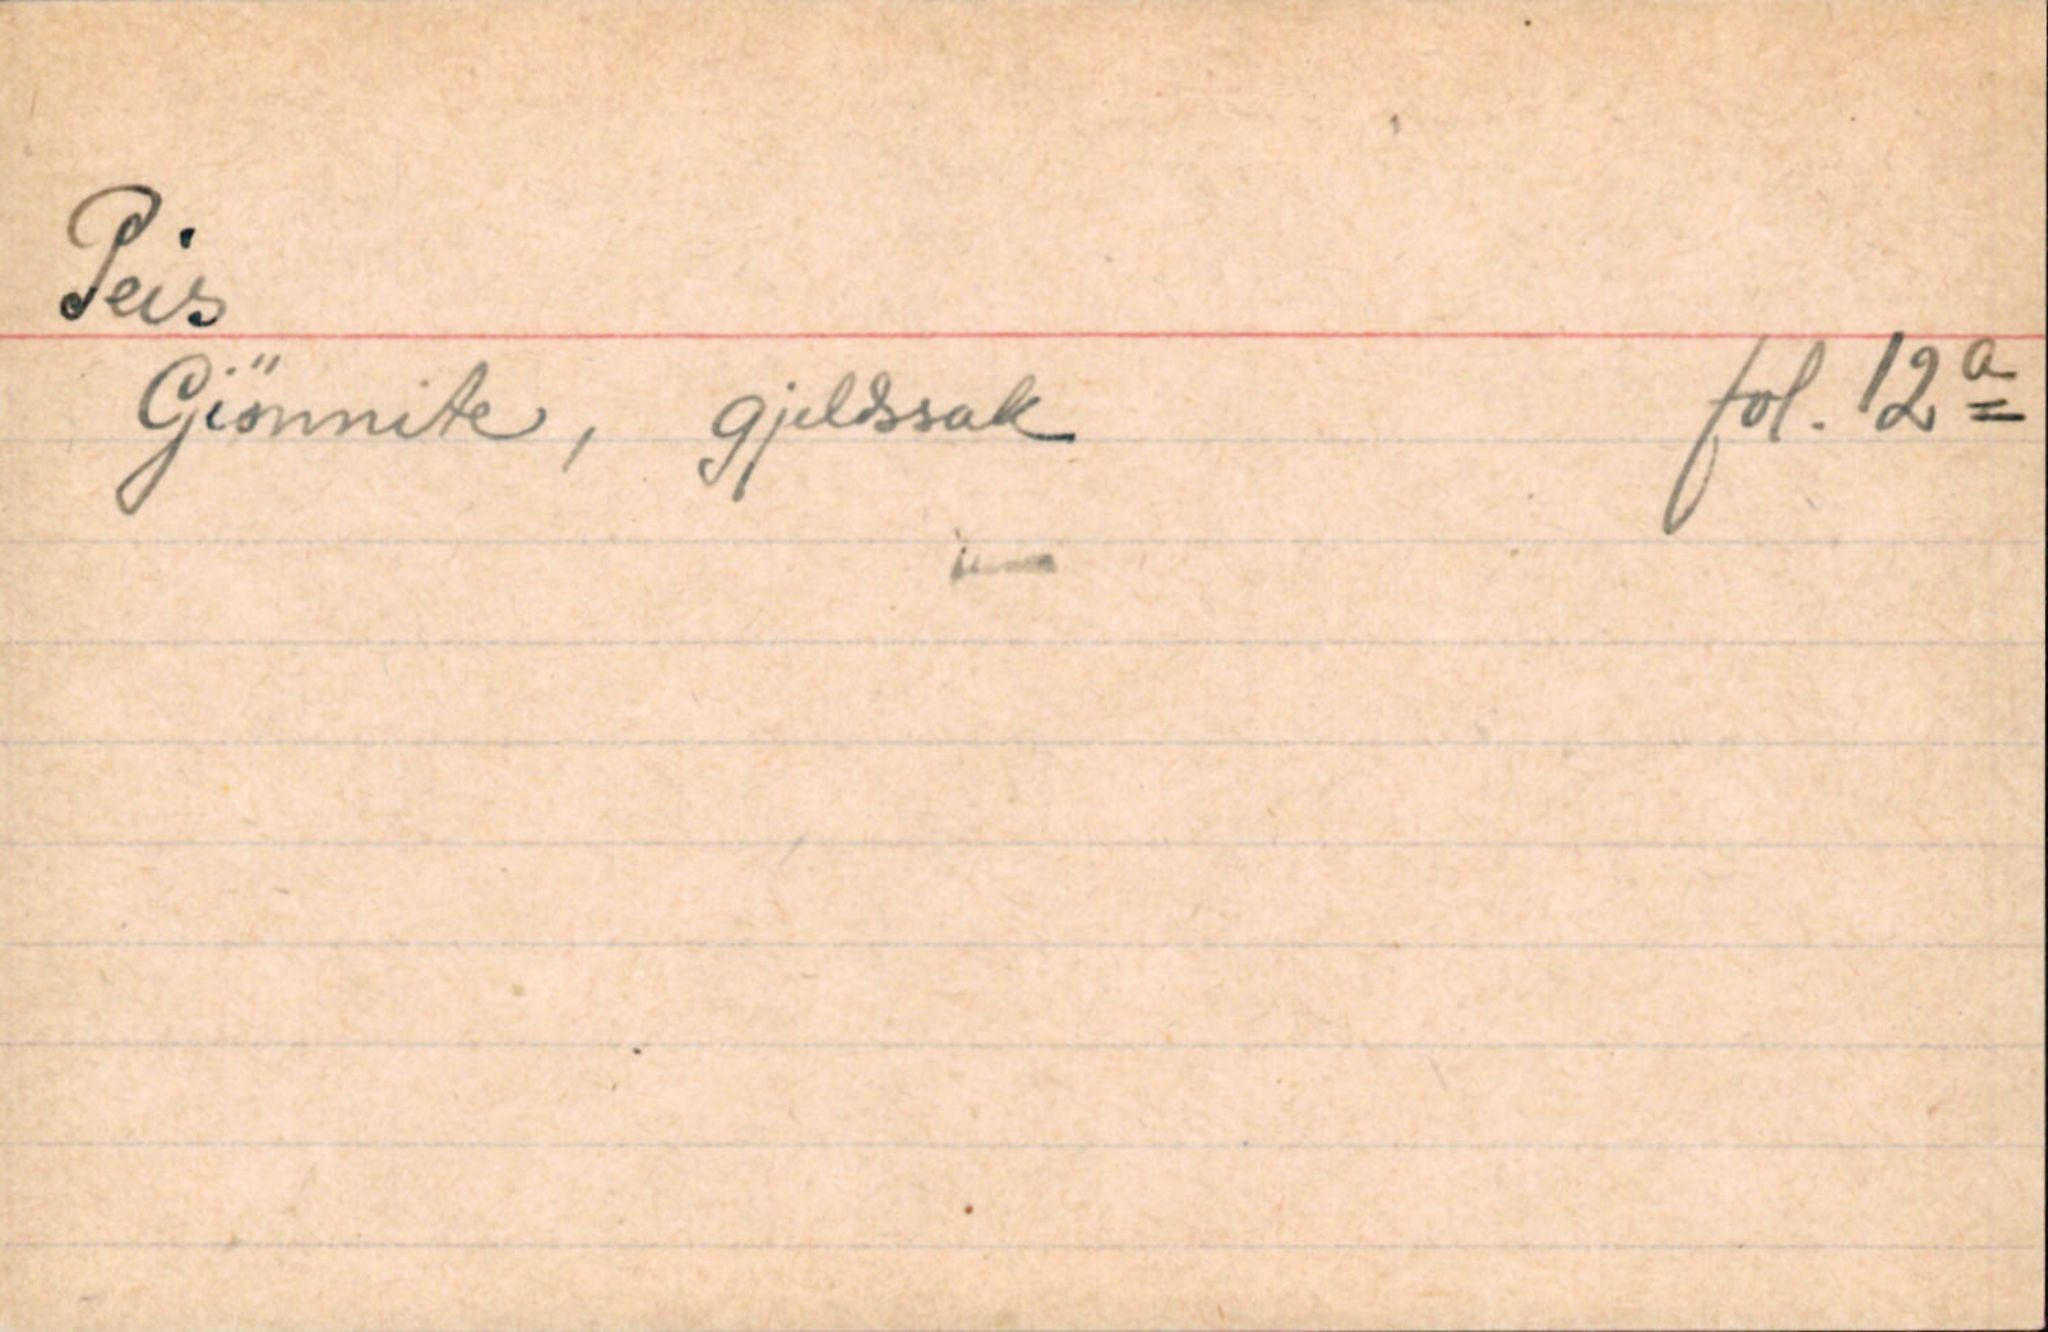 Peis
Giönnite, gjeldssak fol. 12a